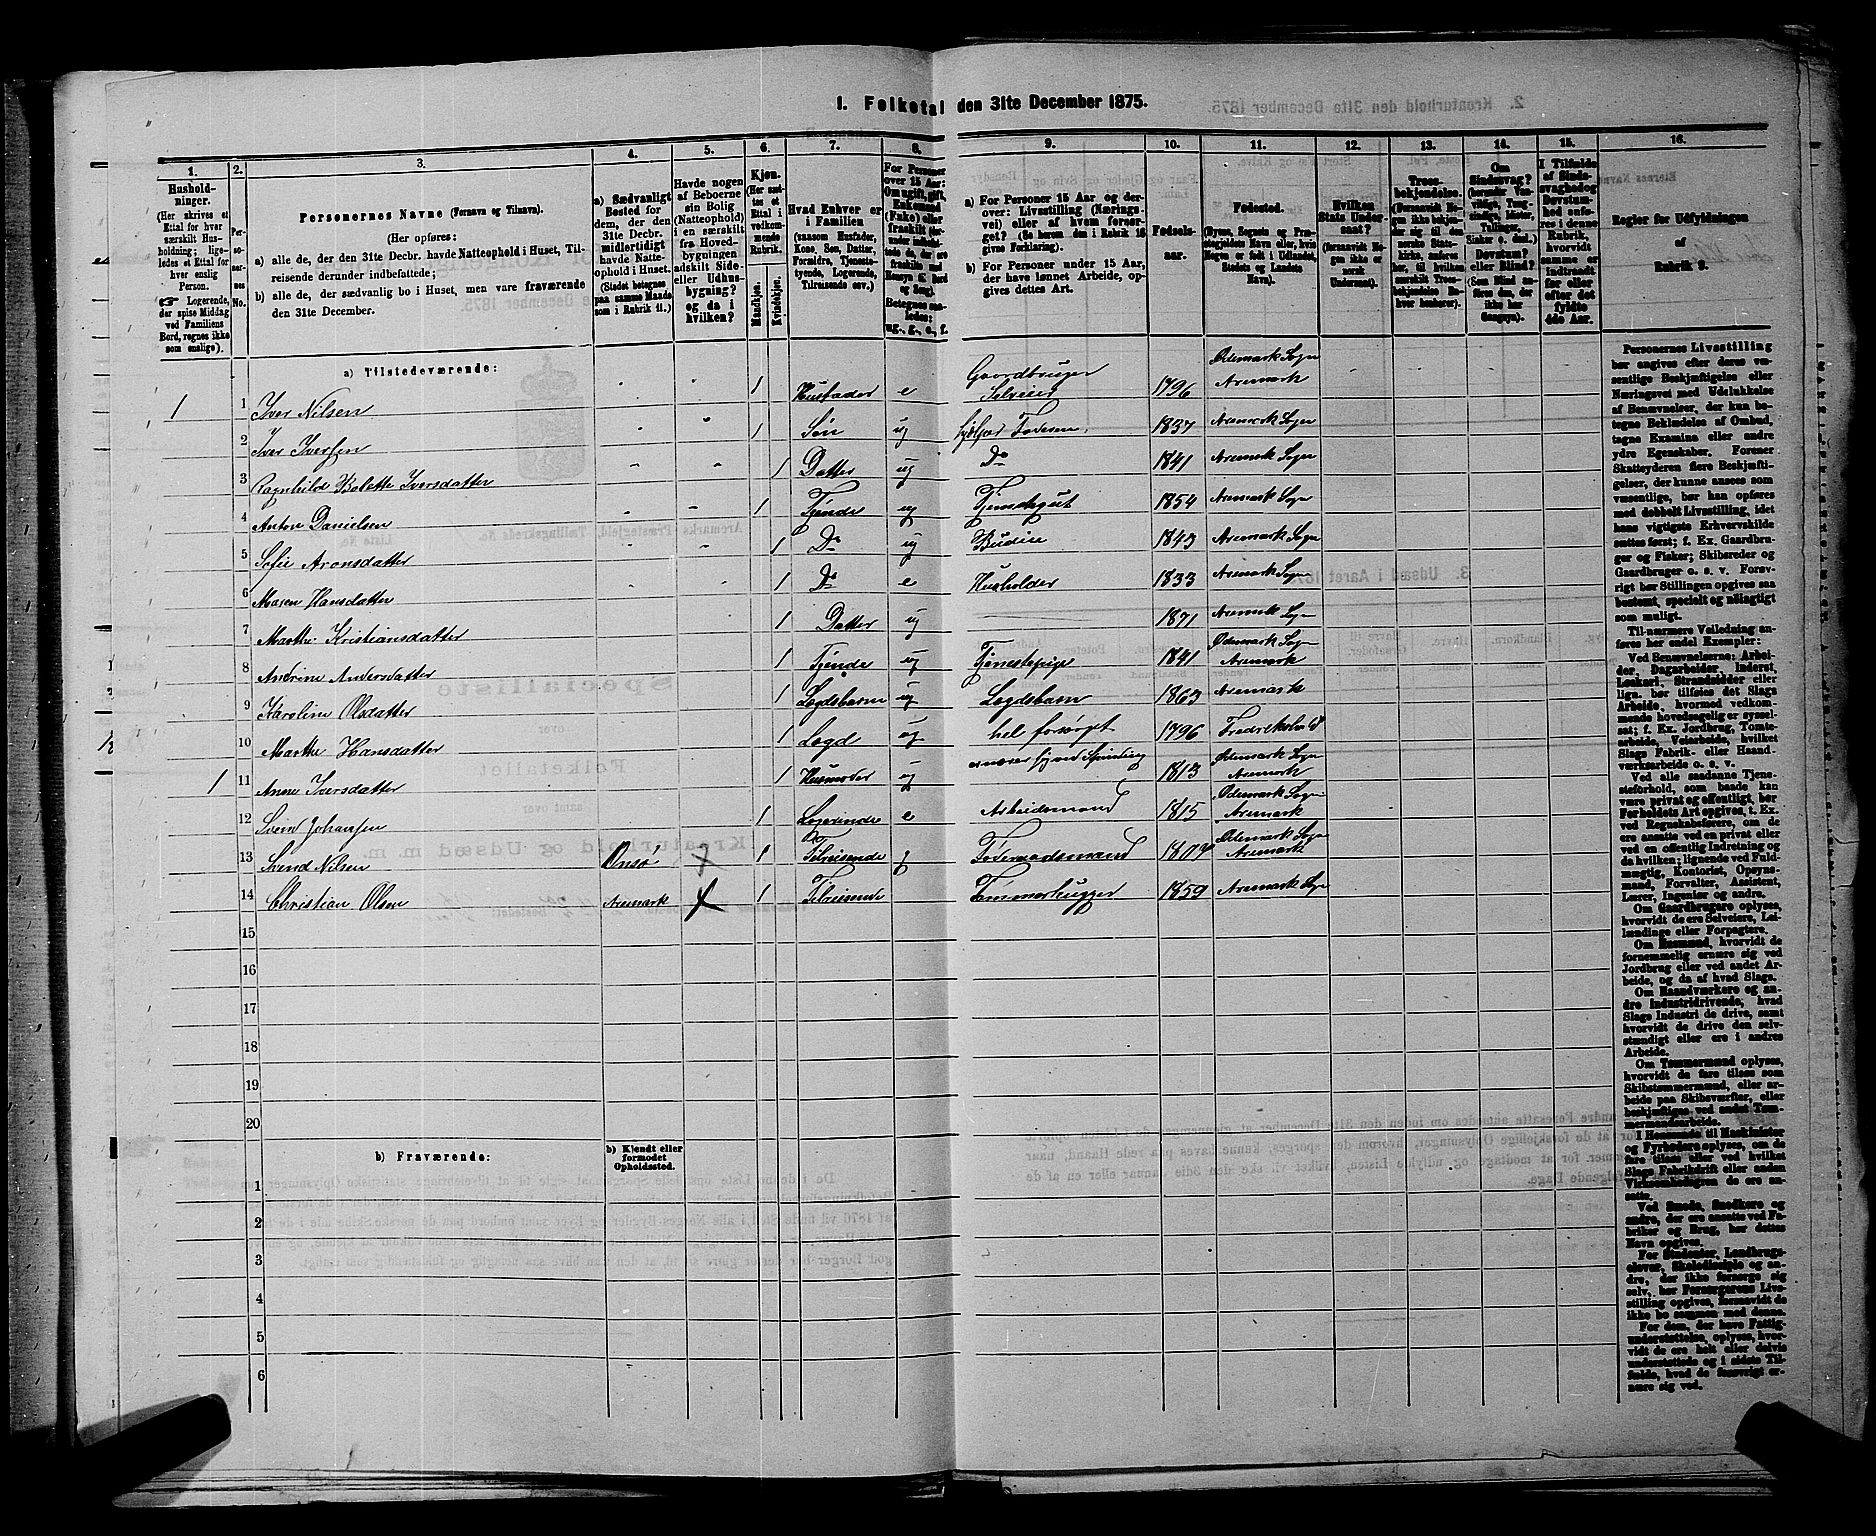 1. Folketal den 31te December 1875.
1.
Hushold-
ninger.
(Her skrives et
Ettal for hver
særskilt Hus-
holdning; lige-
ledes et Ettal for
hver enslig
Person.
Logerende,
der spise Middag
ved Familiens
Bord, regnes ikke
som enslige).
2.
Per-
soner-
nes
No.
3.
Personernes Navne (Fornavn og Tilnavn).
(Her opføres:
a) alle de, der den 31te Decbr. havde Natteophold i Huset, Til-
reisende derunder indbefattede;
b) alle de, der sædvanlig bo i Huset, men vare fraværende
den 31te December.
4.
a) Sædvanligt
Bosted for
dem, der den
31te Decbr.
midlertidigt
havde Natte-
ophold i Huset.
(Stedet betegnes
paa samme Maade
som i Rubrik 11.)
5.
Havde nogen
af Beboerne
sin Bolig
(Natteophold)
i en særskilt
fra Hoved-
bygningen
adskilt Side-
eller Udhus-
bygning?
og da i
hvilken?
6.
Kjøn.
(Her sæt-
tes et
Ettal i
vedkom-
mende
Rubrik.
Mandkjøn.
Kvindekjøn.
7.
Hvad Enhver er
i Familien
(saasom Husfader,
Kone, Søn, Datter,
Forældre, Tjeneste-
tyende, Logerende,
Tilreisende osv.)
8.
For Personer
over 15 Aar:
Om ugift, gift,
Enkemand
(Enke) eller
fraskilt
Betegnes saa-
ledes:
ug., g., e., f.
9.
a) For Personer 15 Aar og der-
over: Livsstilling (Nærings-
vei) eller af hvem forsør-
get? (Se herom den i Rubrik 16
givne Forklaring).
b) For Personer under 15 Aar,
der have lønnet Arbeide, op-
gives dettes Art.
10.
Fødsels-
aar.
11.
Fødested.
(Byens, Sognets og Præ-
stegjeldets Navn eller, hvis
Nogen er født i Udlandet,
Stedets og Landets
Navn).
12.
Hvilken
Stats Under-
saat?
(forsaavidt No-
gen ikke er
norsk
Undersaat).
13.
Troes-
bekjendelse.
(Forsaavidt No-
gen ikke bekjen-
der sig til den
norske Stats-
kirke, anføres
her, til hvilken
særskilt Troes-
bekjendelse En-
hver henhører).
14.
Om
Sindssvag?
(herunder Van-
vittige, Tung-
sindige, Idioter,
Tullinger,
Sinker o. desl.)
Døvstum?
eller Blind?
(Som Blind an-
føres den, der
ikke har
Gangsyn).
15.
I Tilfælde
af Sinds-
svaghed og
Døvstum-
hed anfø-
res i denne
Rubrik,
hvorvidt
samme er
indtraadt
før eller
efter det
fyldte
4de Aar.
16.
Regler for Udfyldningen
af
Rubrik 9.
a) Tilstedeværende:
1 1 Iver Nilsen 1 Husfader e Gaardbruger Selveier 1796 Ødemark Sogn Aremark
2 Iver Iversen 1 Søn ug hjelper Faderen 1837 Aremark Sogn
3 Ragnhild Bolette Iversdatter 1 Datter ug Do 1841 Aremark Sogn
4 Anton Danielsen 1 Tjende ug Tjenestegut 1854 Aremark Sogn
5 Sofie Aronsdatter 1 Do ug Budeie 1843 Aremark Sogn
6 Maren Hansdatter 1 Do e Husholder 1833 Aremark Sogn
7 Marthe Kristiansdatter 1 Datter ug 1871 Aremark Sogn
8 Andrine Andersdatter 1 Tjende ug Tjenestepige 1841 Ødemark Sogn Aremark
9 Karoline Olsdatter 1 Legdsbarn ug Legdsbarn 1863 Aremark
10 Marthe Hansdatter 1 Legd ug hel forsørget 1796 Fredrikshald
1 11 Anne Iversdatter 1 Husmoder ug ernærer sig ved Spinding 1813 Ødemark Sogn Aremark
12 Svend Johansen 1 Logerende e Arbeidsmand 1815 Ødemark Sogn Aremark
13 Svend Nilsen Onsø x 1 Tilreisende g Føderaadsmand 1807 Ødemark Sogn Aremark
14 Christian Olsen Aremark x 1 Tilreisende Tømmerhugger 1859 Aremark Sogn
15
16
17
18
19
20
b) Fraværende:
b) Kjendt eller
formodet
Opholdssted.
1
2
3
4
5
6
Personernes Livsstilling
bør angives efter deres væ-
sentlige Beskjæftigelse eller
Næringsvei med Udelukkelse
af Benævnelser, der kun be-
tegne Beklædelse af Ombud,
tagne Examina eller andre
ydre Egenskaber. Forener
Skatteyderen flere Beskjæfti-
gelser, der kunne ansees som
væsentlige, bør han opføres
med dobbelt Livsstilling, idet
hans vigtigste Erhvervskilde
sættes først; f. Ex. Gaardbru-
ger og Fisker; Skibsreder og
Gaardbruger o. s. v. Forøv-
rigt bør Stillingen opgives saa
bestemt, specielt og nøiagtigt
som muligt.
Til nærmere Veiledning an-
føres her endel Exempler:
Ved Benævnelserne: Arbei-
der, Dagarbeider, Inderst,
Løskarl, Strandsidder eller
lign. bør tilføies det Slags
Arbeide, hvormed vedkom-
mende hovedsagelig er syssel-
sat; f. Ex. Jordbrug, Tomte-
arbeide, Veiarbeide, hvilket
Slags Fabrik- eller Haand-
værksarbeide o. s. v.
Ved alle saadanne Tjene-
steforhold, som baade kan
være privat og offentligt, bør
Forholdets Art opgives, t. Ex.
ved Regnskabsførere, om de
ere ansatte ved en privat eller
en offentlig Indretning og da
hvilken; lignende ved Fuld-
mægtig, Kontorist, Opsyns-
mand, Forvalter, Assistent,
Lærer, Ingeniør og andre.
Om Gaardbrugere oplyses,
hvorvidt de ere Selveiere, Lei-
lændinge eller Forpagtere.
Om Husmænd, hvorvidt de
fornemmelig ernære sig ved
Jordbrug eller ved andet Ar-
beide, og da af hvad Slags.
Om Haandværkere og an-
dre Industridrivende, hvad
Slags Industri de drive, samt
hvorvidt de drive den selv-
stændigt eller ere i andres
Arbeide.
Om Tømmermænd oplyses,
hvorvidt de fare tilsøs som
Skibstømmermænd, eller ar-
beide paa Skibsværfter, eller
beskjæftiges ved andet Tøm-
mermandsarbeide.
I Henseende til Maskinister
og Fyrbødere oplyses, om de
fare tilsøs eller ved hvilket
Slags Fabrikdrift eller anden
Virksomhed de ere an-
satte.
Ved Smede, Snedkere og
andre, der ere ansatte ved Fa-
briker og Brug, bør dettes
Navn opgives.
For Studenter, Landbrugs-
elever, Skoledisciple og an-
dre, der ikke forsørge sig
selv, bør Forsørgerens Livs-
stilling opgives, forsaavidt de
ikke bo sammen med denne.
For dem, der have Fattig-
understøttelse, oplyses, hvor-
vidt de ere helt eller delvis
understøttede og i sidste Til-
fælde, hvad de forøvrigt er-
nære sig ved.